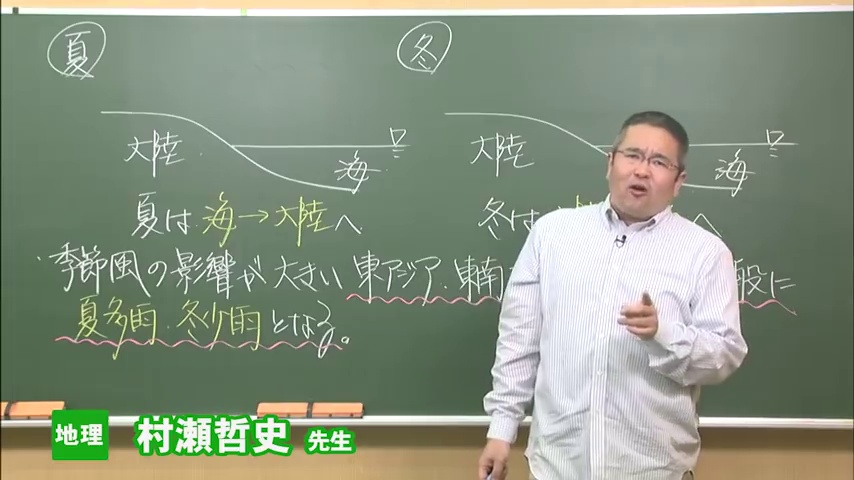 夏
冬
大陸
海
大陸
海
夏は 海→大陸へ
冬は へ
季節風の影響が大きい東アジア・東南 般に
夏多雨・冬少雨となる。
地理 村瀬哲史 先生